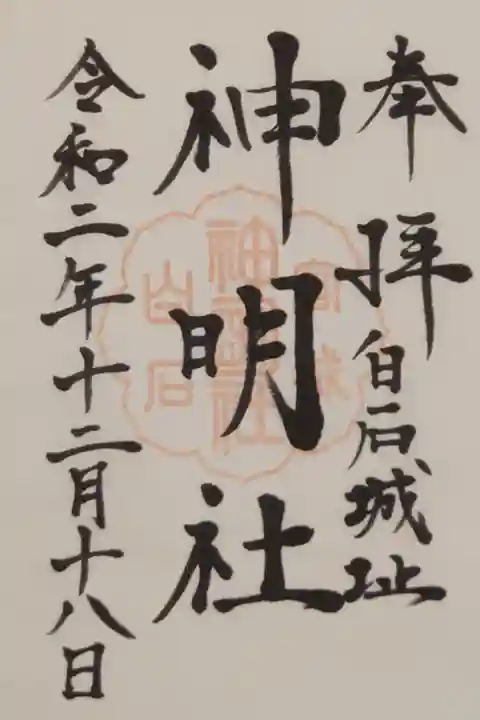 奉拝
白石城址
神明社
令和二年十二月十八日
宮城
神明社
白石